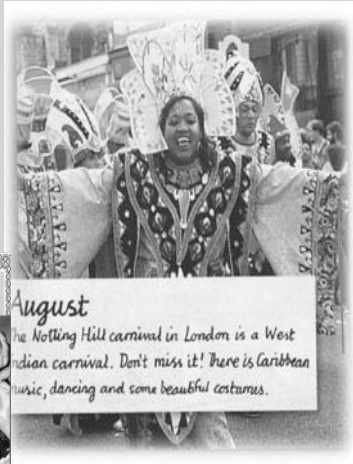 August
he Notting Hill carnival in London is a West
ndian carnival. Don't miss it! There is Caribbean
usic, dancing and some beautiful costumes.